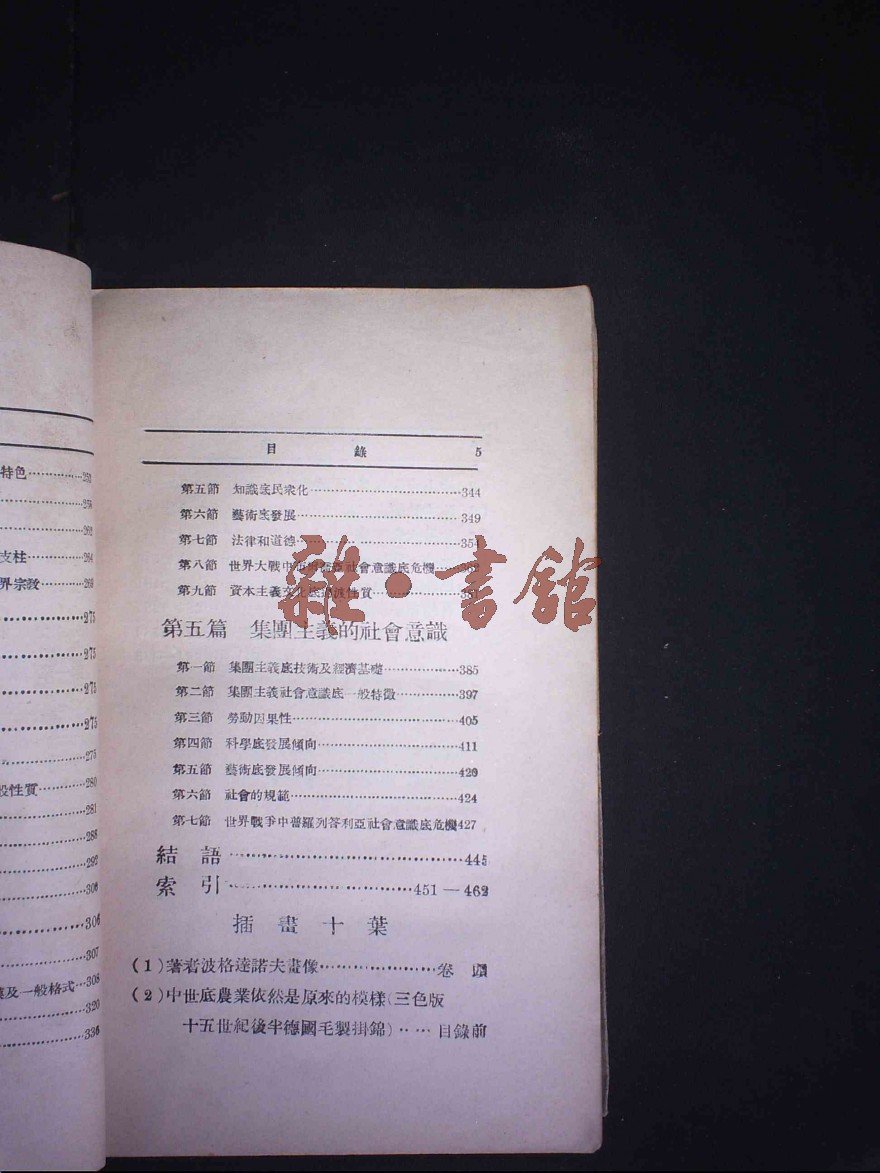 特色……………253
258
262
支柱……………264
界宗教……………269
275
275
275
275
275
般性質……………280
281
288
292
306
306
307
及一般格式…308
320
336
目錄 5
第五節 知識底民衆化……………344
第六節 藝術底發展……………349
第七節 法律和道德……………354
第八節 世界大戰中 社會意識底危機
第九節 資本主義文化底 性質
第五篇 集團主義的社會意識
第一節 集團主義底技術及經濟基礎……………385
第二節 集團主義社會意識底一般特徵……………397
第三節 勞動因果性……………405
第四節 科學底發展傾向……………411
第五節 藝術底發展傾向……………420
第六節 社會的規範……………424
第七節 世界戰爭中普羅列答利亞社會意識底危機427
結語……………445
索引……………451—462
插畫十葉
(1)著者波格達諾夫畫像……………卷頭
(2)中世底農業依然是原來的模樣(三色版
十五世紀後半德國毛製掛錦)……目錄前
雜·書館